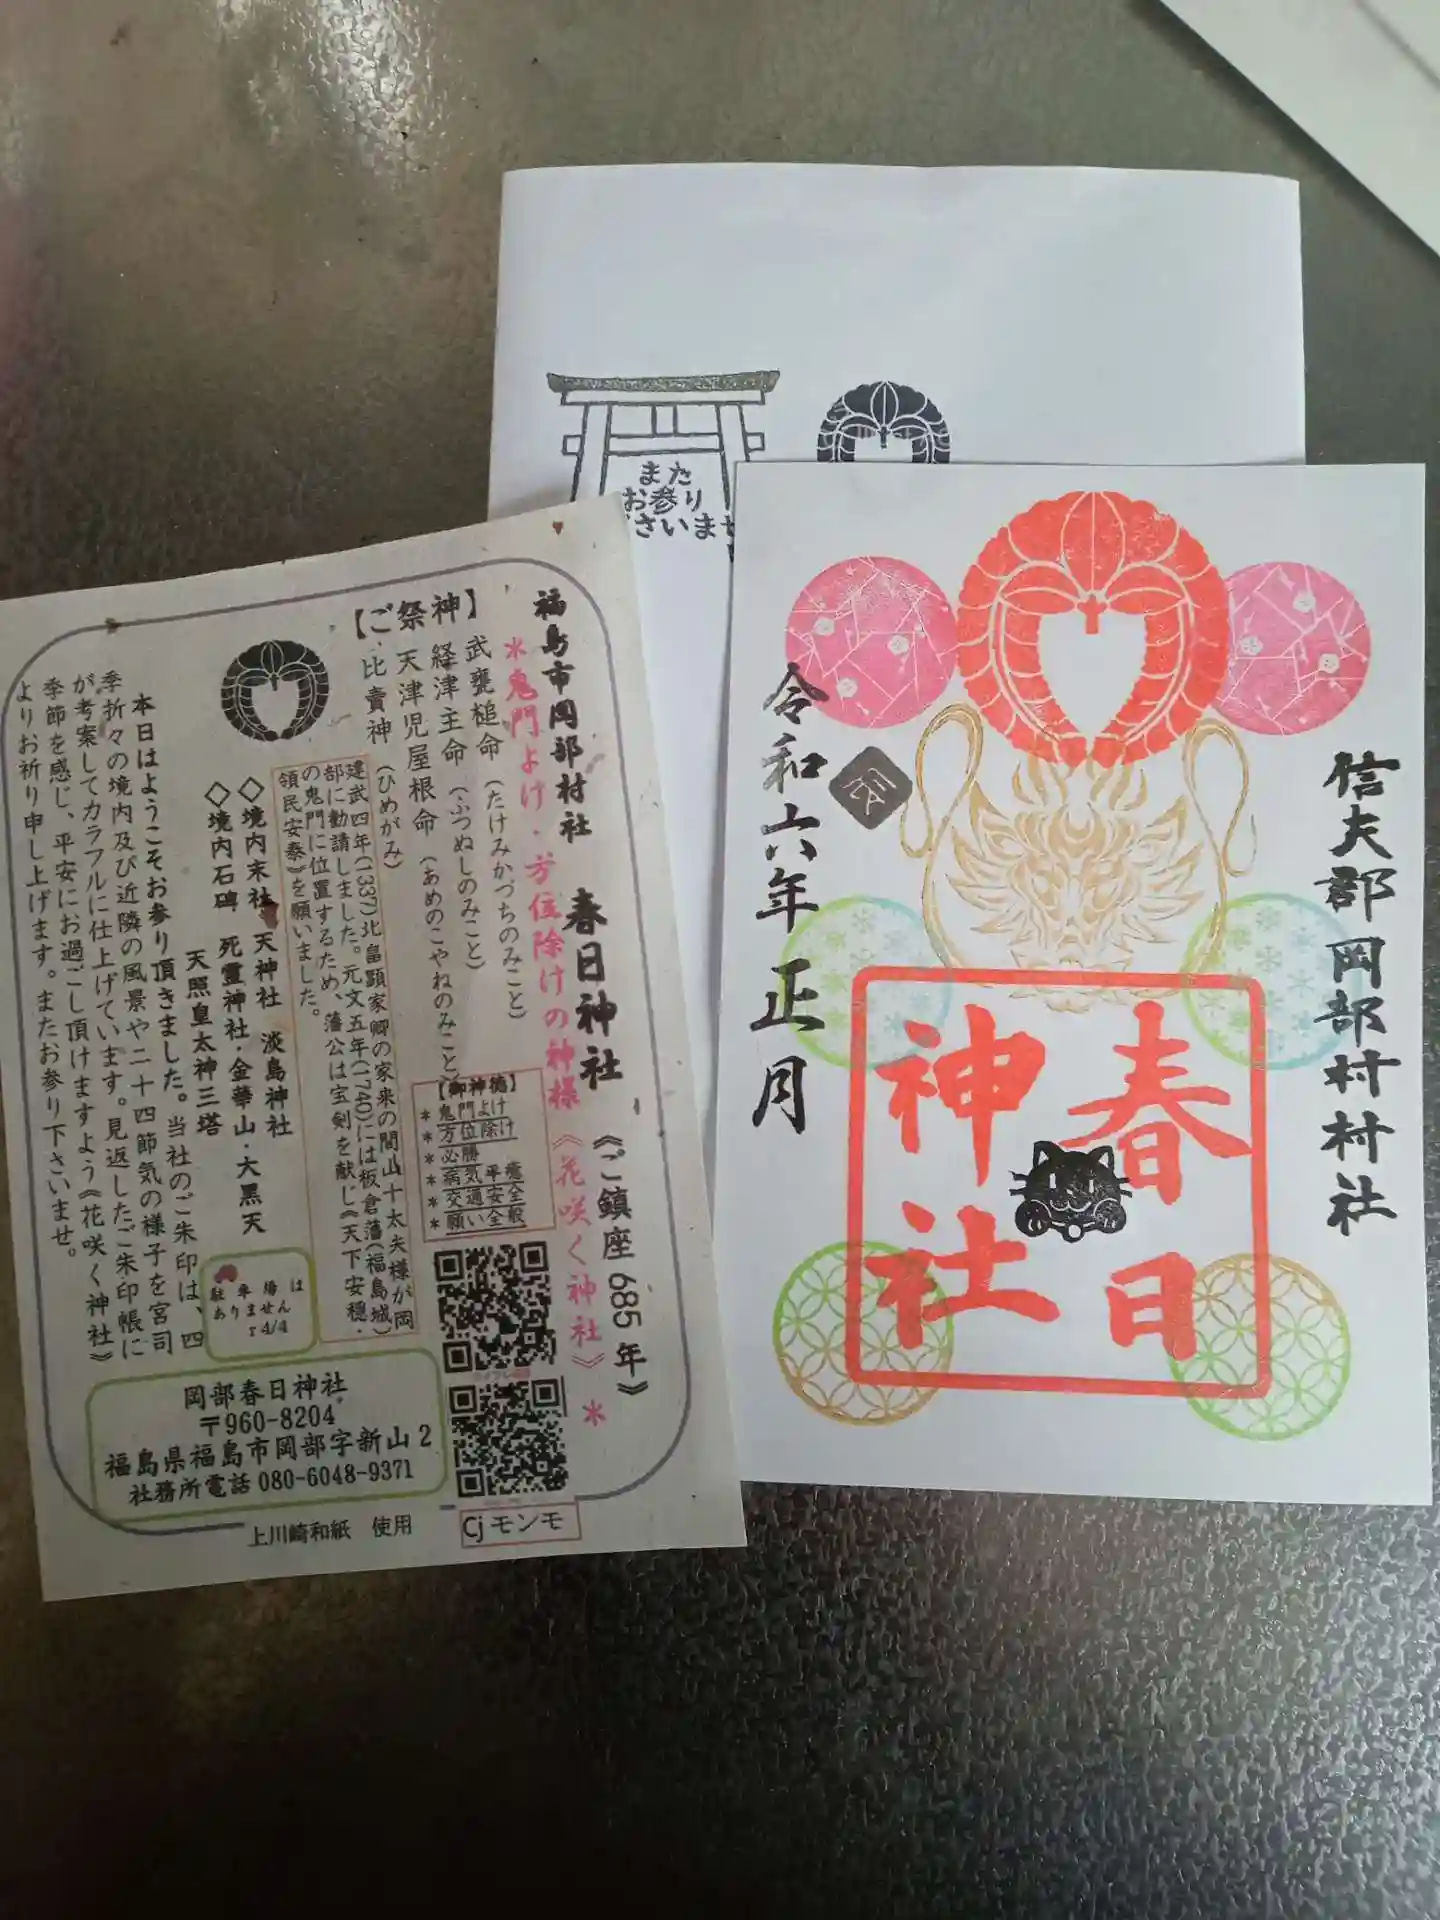 また
お参り
さいませ
福島市岡部村社 春日神社 《ご鎮座685年》
*鬼門よけ・方位除けの神様《花咲く神社》*
【ご祭神】
武甕槌命(たけみかづちのみこと)
経津主命(ふつぬしのみこと)
天津児屋根命(あめのこやねのみこと)
比賣神(ひめがみ)
【御神徳】
*鬼門よけ
*方位除け
*必勝
*病気平癒
*交通安全
*願い全般
建武四年(1337)北畠顕家卿の家来の間山十太夫様が岡
部に勧請しました。元文五年(1740)には板倉藩(福島城)
の鬼門に位置するため、藩公は宝剣を献じ《天下安穏・
領民安泰》を願いました。
◇境内末社 天神社 淡島神社
死霊神社・金華山・大黒天
◇境内石碑 天照皇太神三塔
本日はようこそお参り頂きました。当社のご朱印は、四
季折々の境内及び近隣の風景や二十四節気の様子を宮司
が考案してカラフルに仕上げています。見返したご朱印帳に
季節を感じ、平安にお過ごし頂けますよう《花咲く神社》
よりお祈り申し上げます。またお参り下さいませ。
駐車場は
ありません
岡部春日神社
〒960-8204
福島県福島市岡部字新山2
社務所電話 080-6048-9371
上川崎和紙 使用
Cjモンモ
信夫郡岡部村村社
春日
神社
辰
令和六年正月